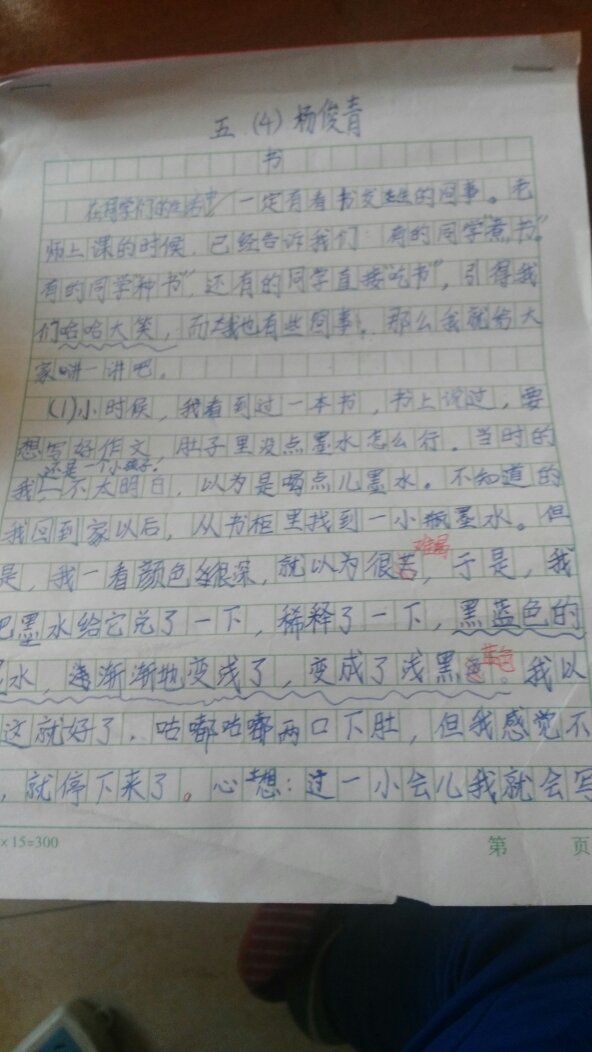 五 (4) 杨俊青
书
在同学们的生活中，一定有着书发生的同事。老
师上课的时候，已经告诉我们：有的同学"煮书"。
有的同学"种书"，还有的同学直接"吃书"，引得我
们哈哈大笑，而我也有些同事，那么我就给大
家讲一讲吧。
(1)小时候，我看到过一本书，书上说过，要
想写好作文，肚子里没点墨水怎么行。当时的
还是一个小孩子。
我 不太明白，以为是喝点儿墨水。不知道的
我回到家以后，从书柜里找到一小瓶墨水。但
难喝
是，我一看颜色很深，就以为很苦，于是，我
把墨水给它兑了一下，稀释了一下，黑蓝色的
水，渐渐地变浅了，变成了浅黑 蓝色 我以
这就好了，咕嘟咕嘟两口下肚，但我感觉不
，就停下来了。心想：过一小会儿我就会写
×15=300
第 页